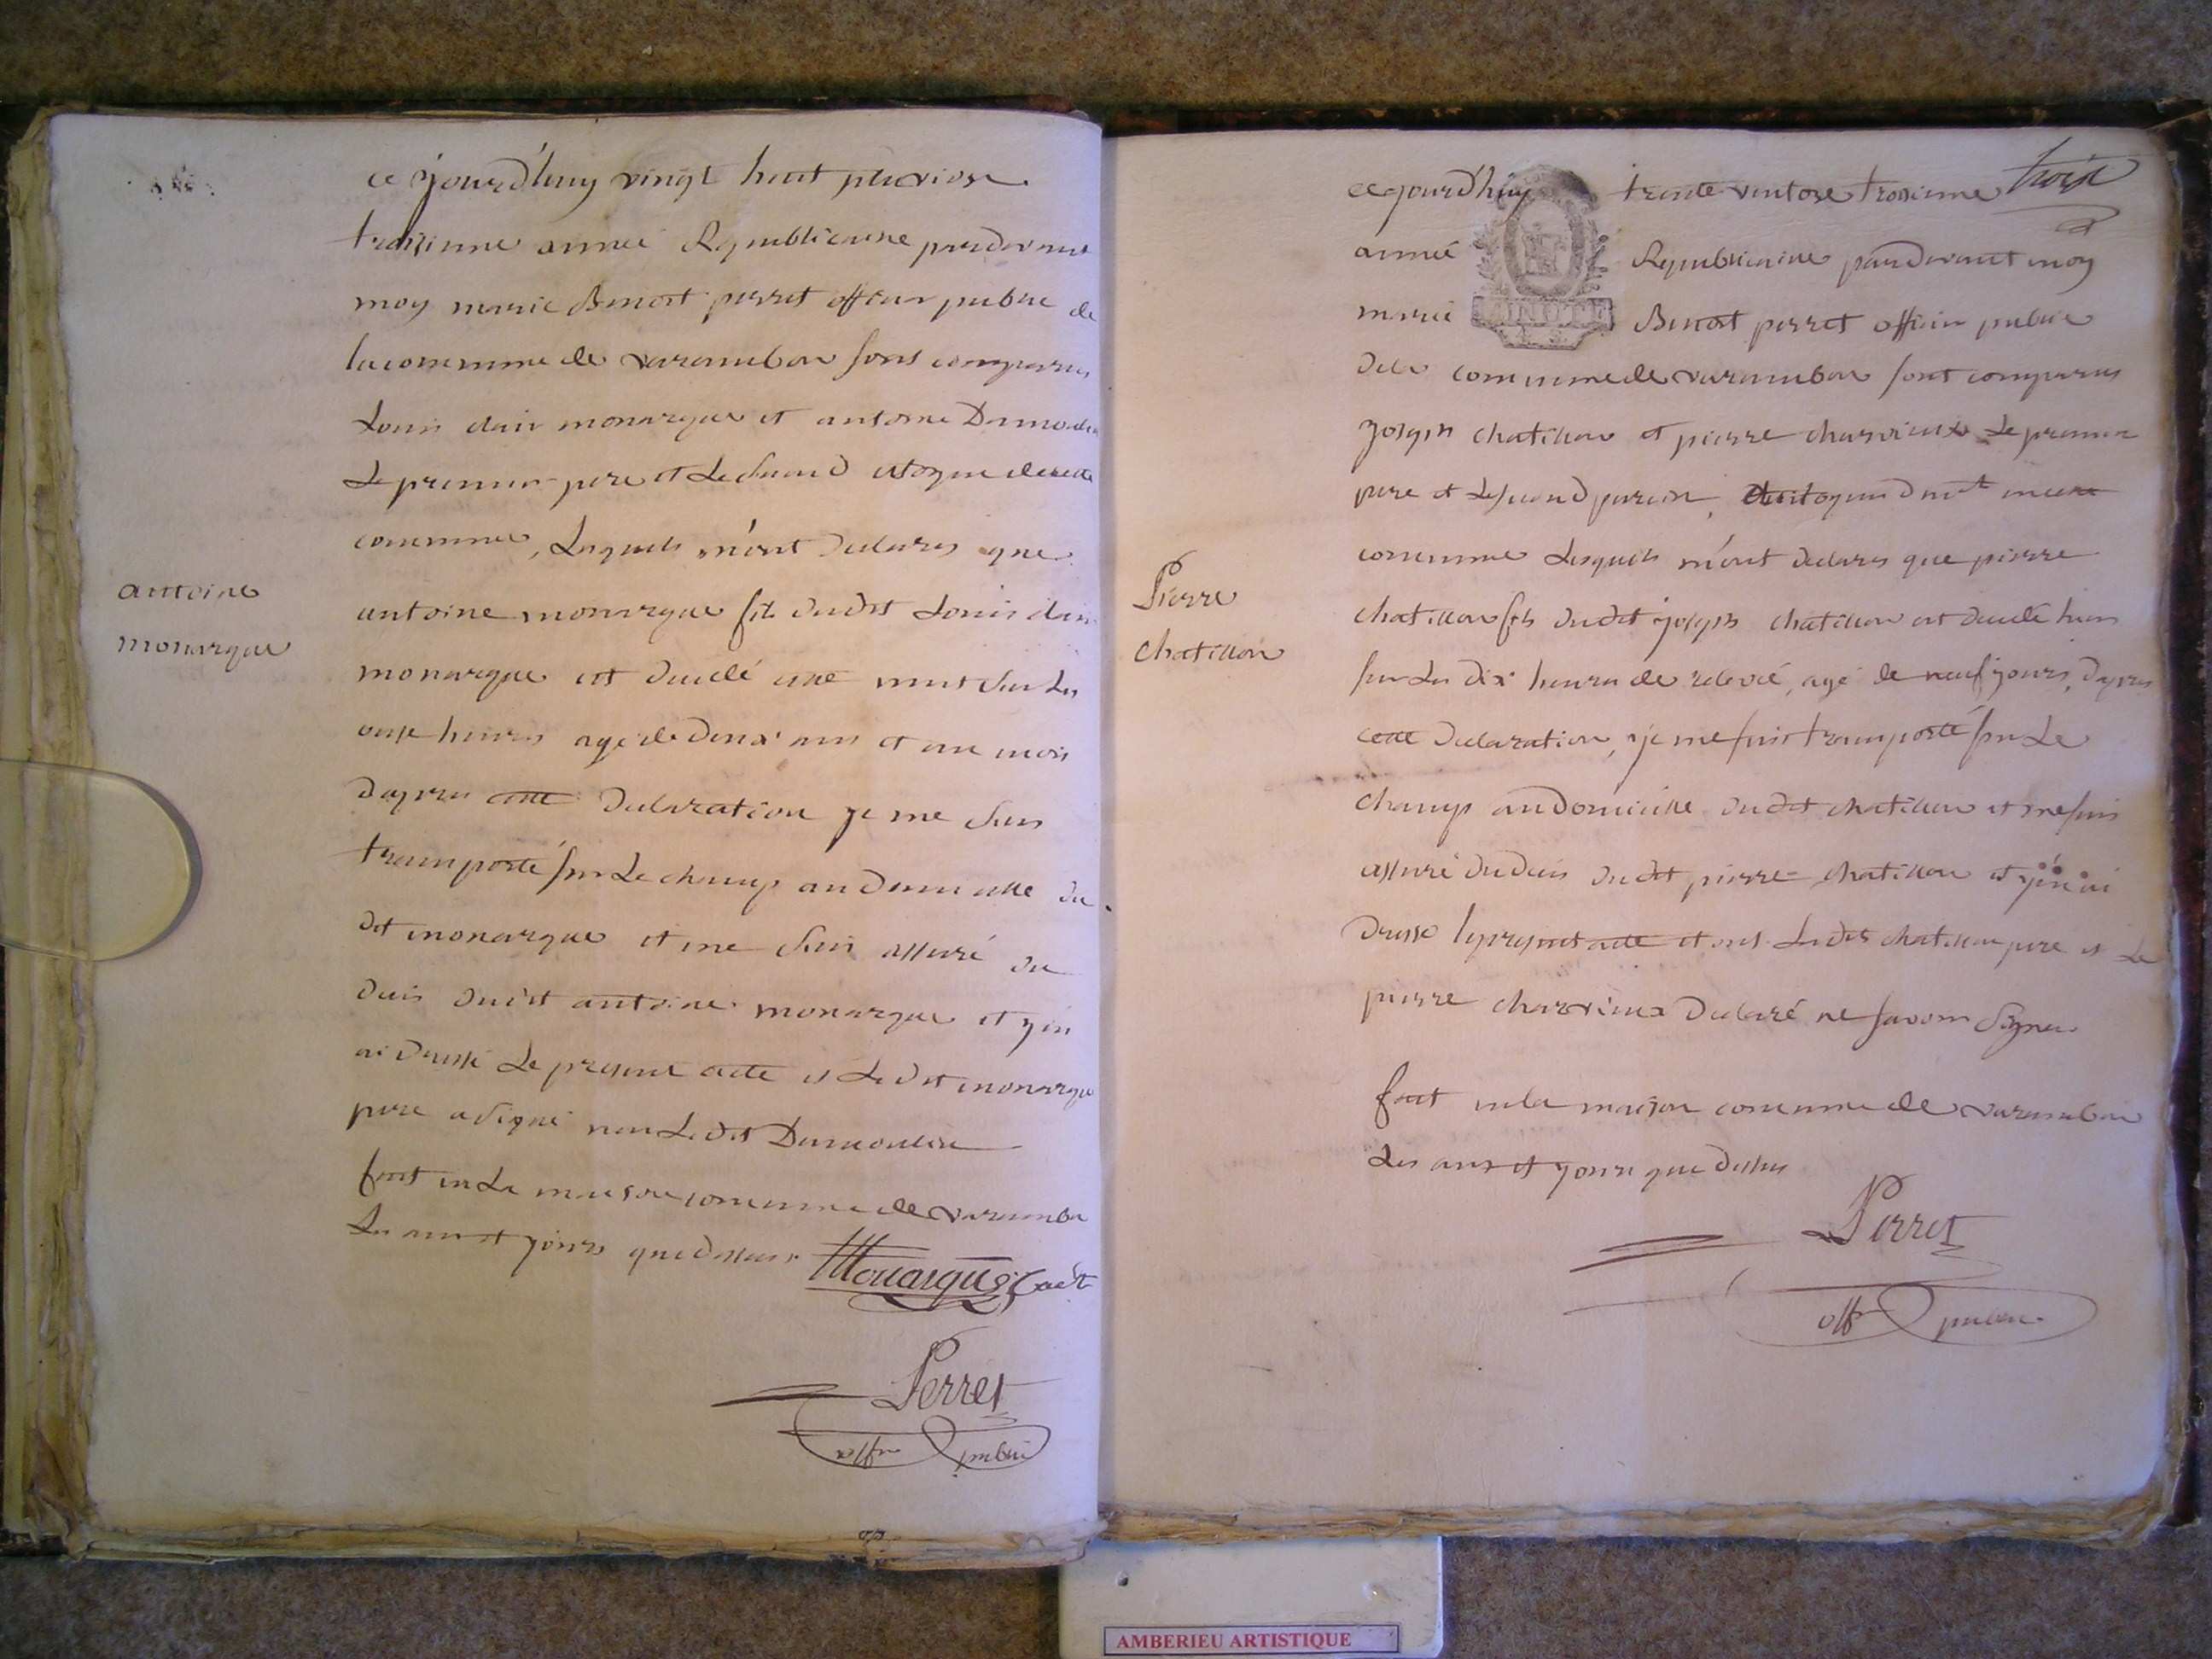 ce jourd'huy vingt huit pluviose
troisieme année Republicaine pardevant
moy marie Benoit perret officier public de
la commune de varambon sont comparus
Louis clair monarque et antoine Dumoulin
Le premier pere et Le second citoyen de cette
commune, Lesquels m'ont declares que
antoine monarque fils dudit Louis clair
monarque est decedé cette nuit sur Les
onze heures agé de deux ans et un mois
d'apres cette declaration je me suis
transporté sur Le champ au domicille du
dit monarque et me suis assuré du
deces dudit antoine monarque et j'en
ai dressé Le present acte et Le dit monarque
pere a signé non Le dit Dumoulin
fait en La maison commune de varambon
Les an et jours que dessus.
antoine
monarque
Monarque
Perret
offier public
ce jourd'huy trente ventose troisieme trois
année Republicaine pardevant moy
marie Benoit perret officier public
MINUTE
de la commune de varambon sont comparus
joseph chatillon et pierre charvieux Le premier
pere et Le second parent, citoyens dud.t
commune Lesquels m'ont declares que pierre
chatillon fils dudit joseph chatillon est decedé hier
sur Les dix heures de relevée, agé de neuf jours, d'apres
cette declaration, je me suis transporté sur Le
champ au domicille dudit chatillon et me suis
assuré du deces dudit pierre chatillon et j'en ai
dressé le present acte et ont Ledit chatillon pere et Le
pierre charvieux declaré ne savoir signer
fait en la maison commune de varambon
Les an et jours que dessus
Pierre
chatillon
Perret
offier public
AMBERIEU ARTISTIQUE